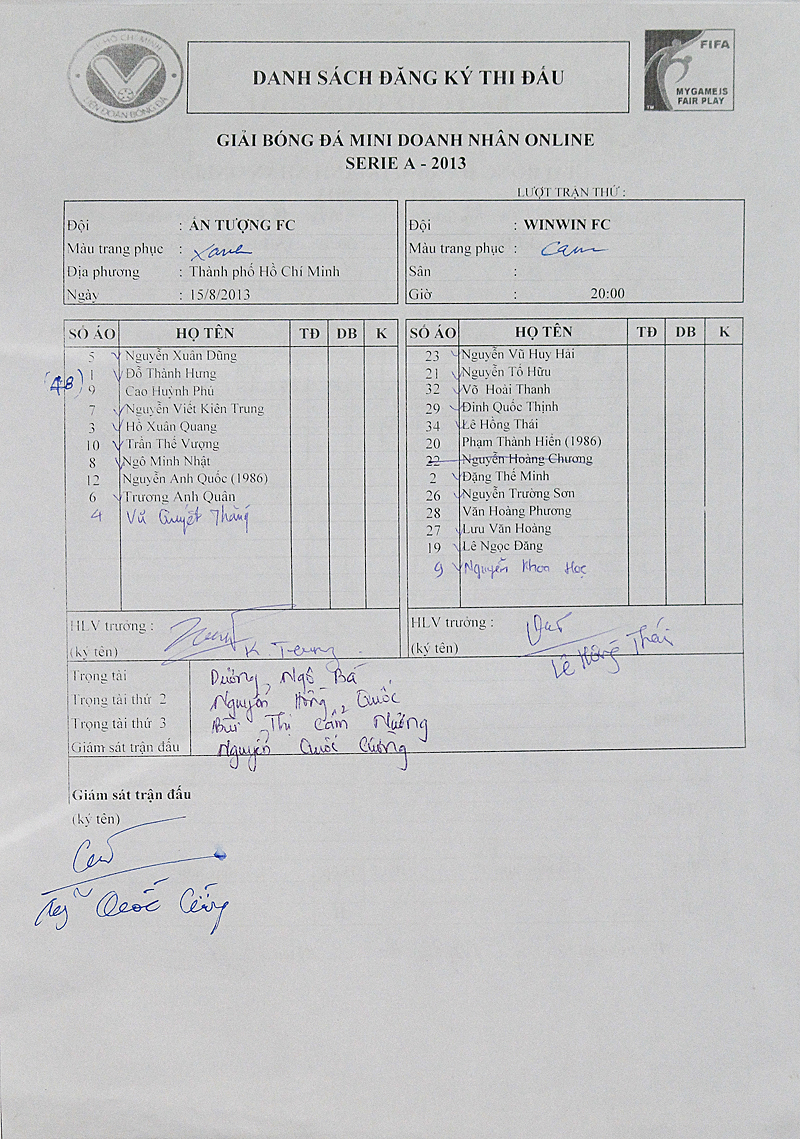 TP HỒ CHÍ MINH
LIÊN ĐOÀN BÓNG ĐÁ
DANH SÁCH ĐĂNG KÝ THI ĐẤU
FIFA
MY GAME IS
FAIR PLAY
GIẢI BÓNG ĐÁ MINI DOANH NHÂN ONLINE
SERIE A - 2013
LƯỢT TRẬN THỨ :
Đội : ẤN TƯỢNG FC
Màu trang phục : Xanh
Địa phương : Thành phố Hồ Chí Minh
Ngày : 15/8/2013
Đội : WINWIN FC
Màu trang phục : Cam
Sân :
Giờ : 20:00
SỐ ÁO HỌ TÊN TĐ DB K
5 Nguyễn Xuân Dũng
1 Đỗ Thành Hưng
(48) 9 Cao Huỳnh Phú
7 Nguyễn Viết Kiên Trung
3 Hồ Xuân Quang
10 Trần Thế Vượng
8 Ngô Minh Nhật
12 Nguyễn Anh Quốc (1986)
6 Trương Anh Quân
4 Vũ Quyết Thắng
SỐ ÁO HỌ TÊN TĐ DB K
23 Nguyễn Vũ Huy Hải
21 Nguyễn Tố Hữu
32 Võ Hoài Thanh
29 Đinh Quốc Thịnh
34 Lê Hồng Thái
20 Phạm Thành Hiển (1986)
22 Nguyễn Hoàng Chương
2 Đặng Thế Minh
26 Nguyễn Trường Sơn
28 Văn Hoàng Phương
27 Lưu Văn Hoàng
19 Lê Ngọc Đăng
9 Nguyễn Khoa Học
HLV trưởng :
(ký tên) K. Trung
HLV trưởng :
(ký tên) Lê Hồng Thái
Trọng tài Dương Ngô Bá
Trọng tài thứ 2 Nguyễn Hồng Quốc
Trọng tài thứ 3 Bùi Thị Cẩm Nhung
Giám sát trận đấu Nguyễn Quốc Cường
Giám sát trận đấu
(ký tên)
Quốc Cường